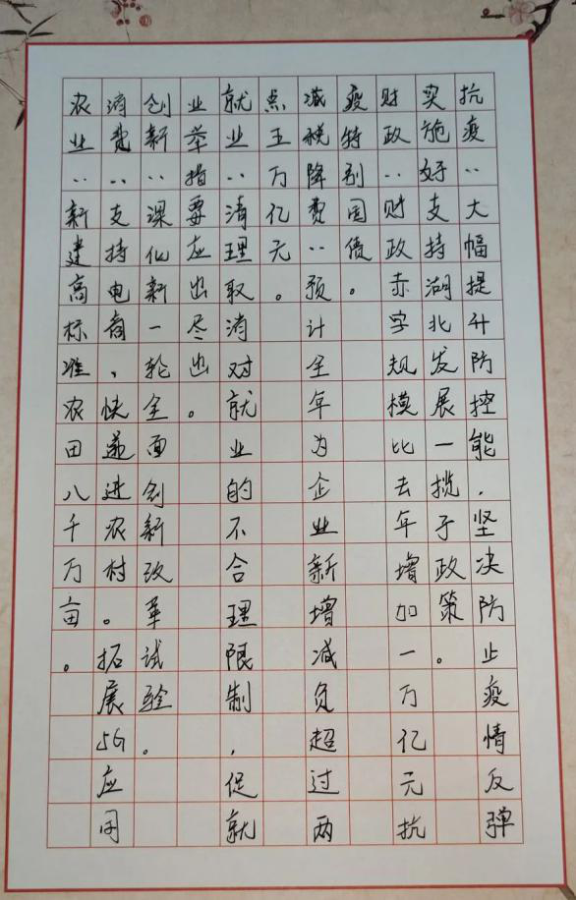 抗疫：大幅提升防控能，坚决防止疫情反弹
实施好支持湖北发展一揽子政策。
财政：财政赤字规模比去年增加一万亿元抗
疫特别国债。
减税降费：预计全年为企业新增减负超过两
点五万亿元。
就业：清理取消对就业的不合理限制，促就
业举措要应出尽出。
创新：深化新一轮全面创新改革试验。
消费：支持电商、快递进农村。拓展5G应用
农业：新建高标准农田八千万亩。